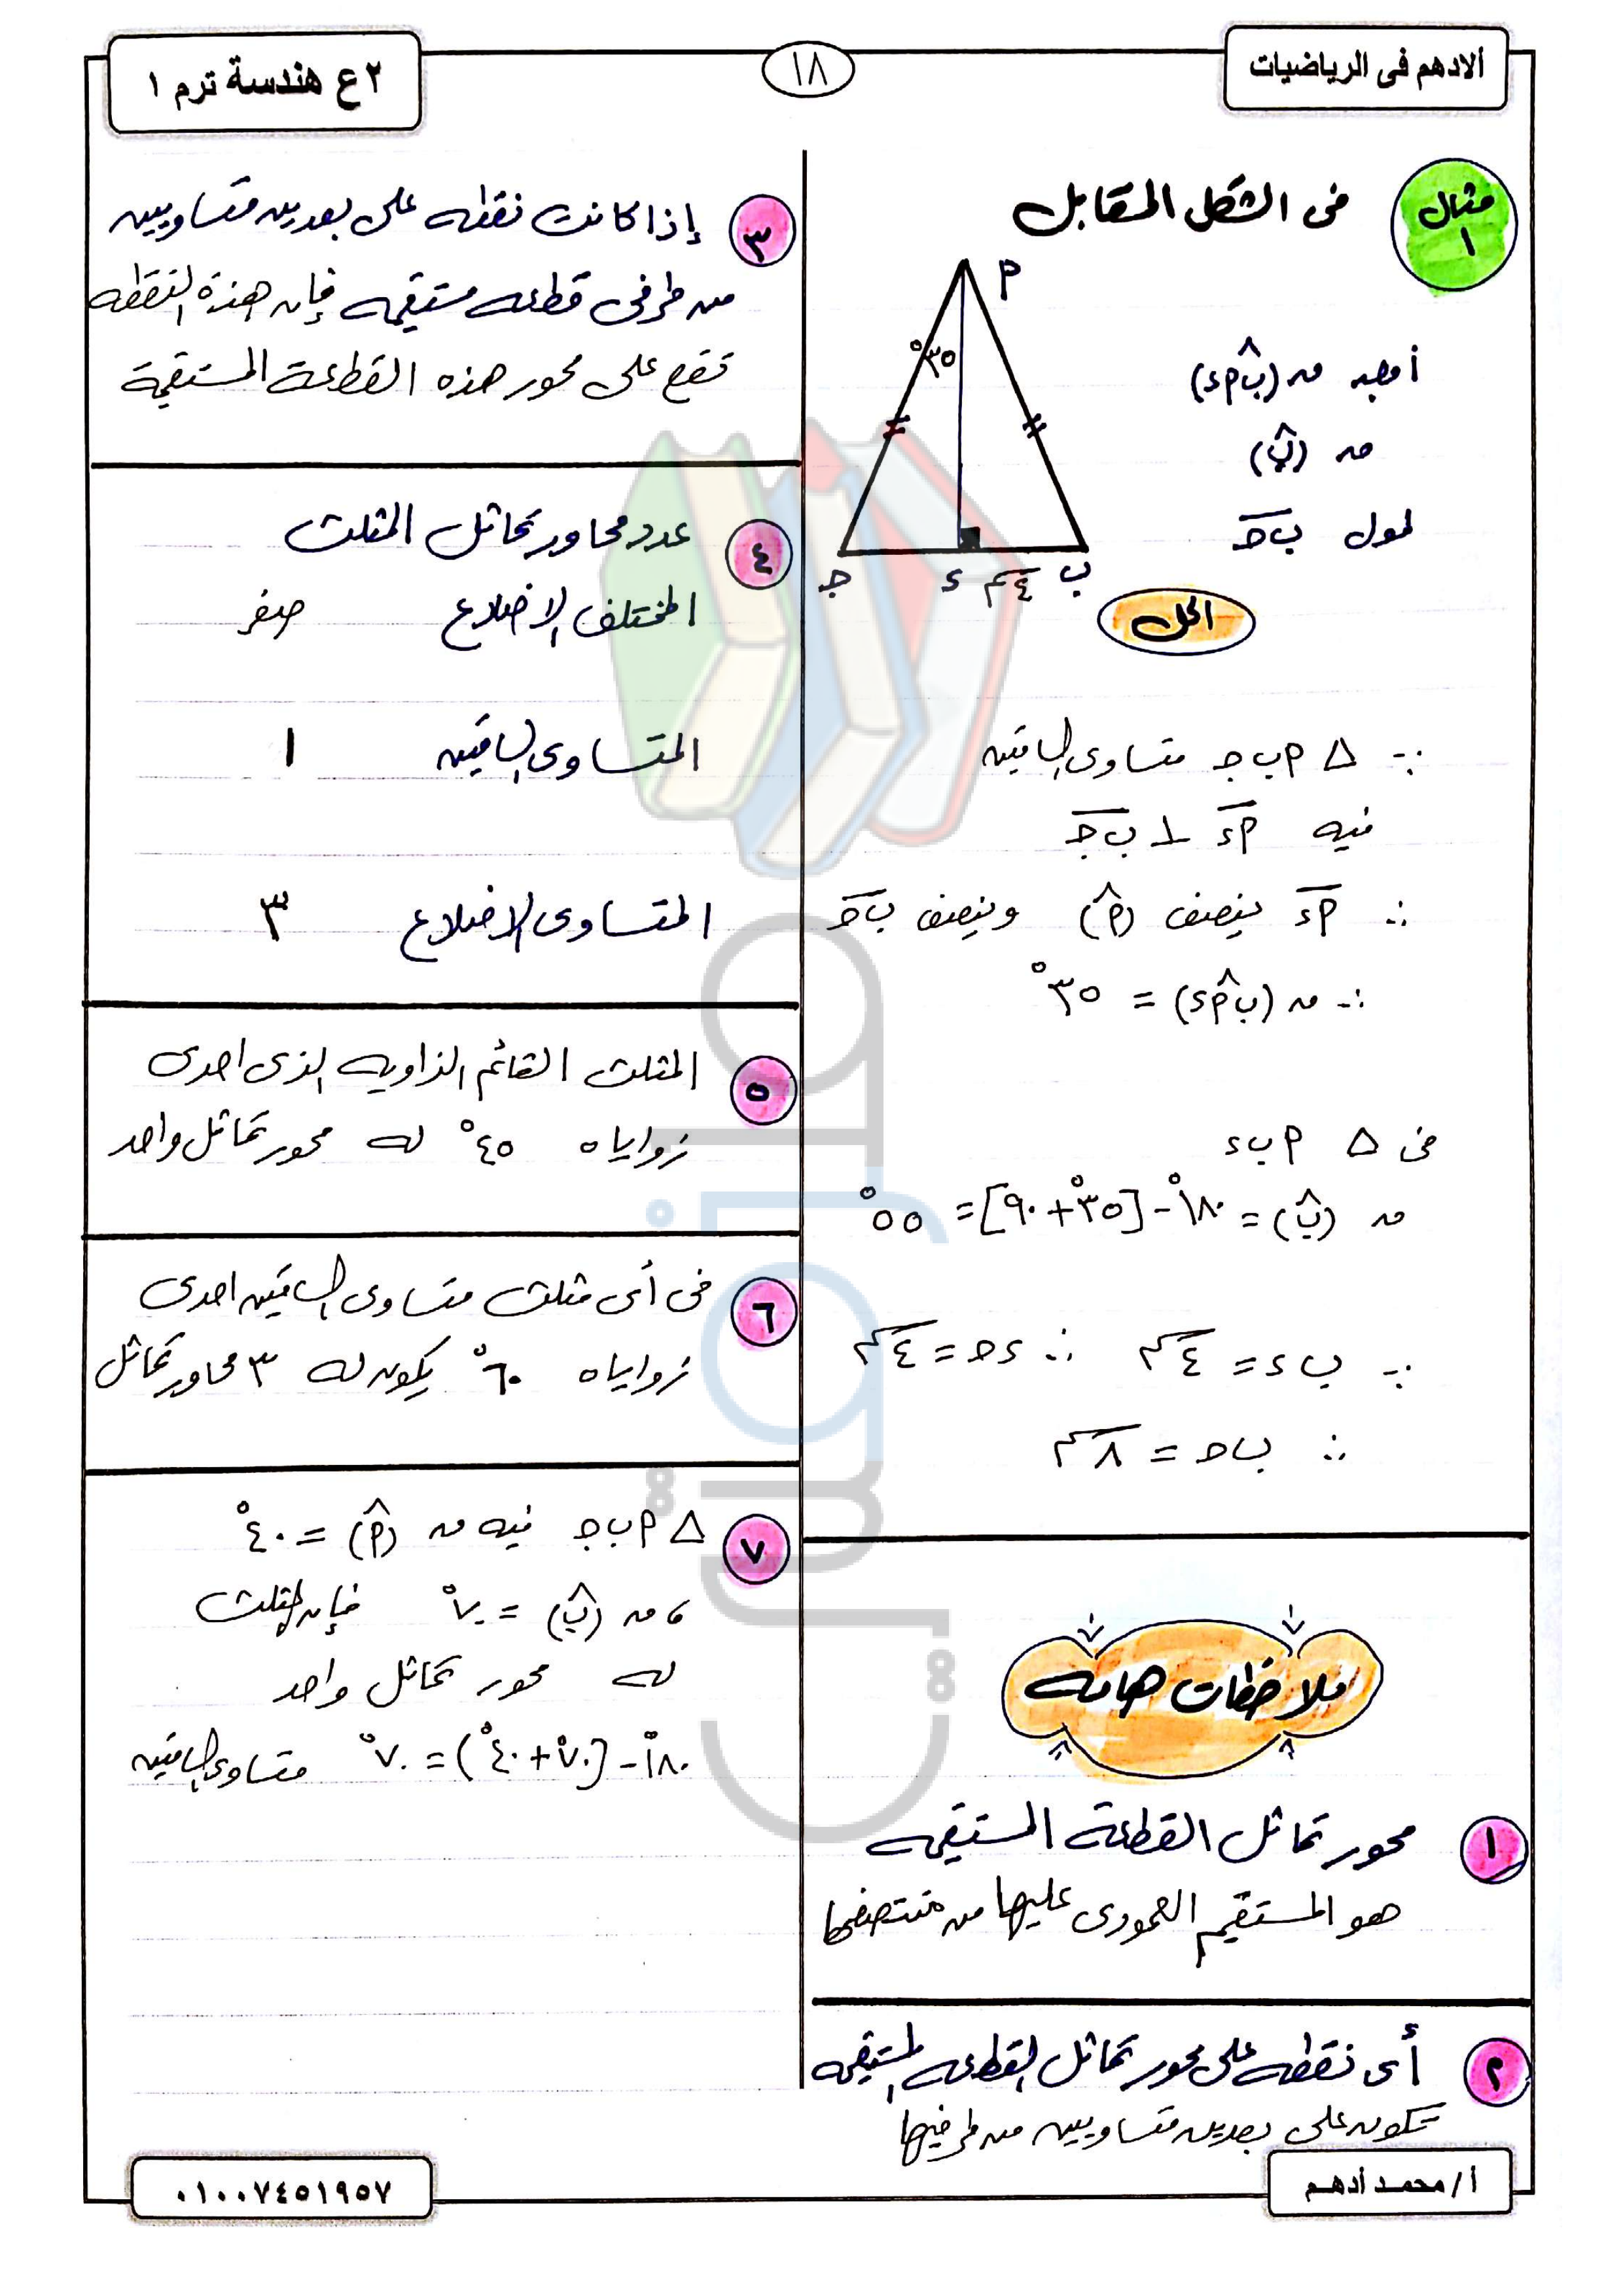 ألادهم فى الرياضيات
١٨
٢ع هندسة ترم ١
مثال ١
فى الشكل المقابل
أوجد ق(ب أ^ د)
ق (ب^)
طول ب ج
أ
٣٥°
ب
٤ سم
د
ج
الحل
∵ △ أ ب ج متساوى الساقين
فيه أ د ⊥ ب ج
∴ أ د ينصف (أ^) وينصف ب ج
∴ ق (ب أ^ د) = ٣٥°
فى △ أ ب د
ق (ب^) = ١٨٠° - [٣٥° + ٩٠°] = ٥٥°
∵ ب د = ٤ سم ∴ د ج = ٤ سم
∴ ب ج = ٨ سم
ملاحظات هامه
١ محور تماثل القطعة المستقيمه
هو المستقيم العمودى عليها من منتصفها
٢ أى نقطه على محور تماثل القطعه المستقيمه
تكون على بعدين متساويين من طرفيها
٣ إذا كانت نقطه على بعدين متساويين
من طرفى قطعه مستقيمه فإن هذه النقطه
تقع على محور هذه القطعة المستقيمة
٤ عدد محاور تماثل المثلث
المختلف الاضلاع صفر
المتساوى الساقين ١
المتساوى الاضلاع ٣
٥ المثلث القائم الزاويه الذى احدى
زواياه ٤٥° له محور تماثل واحد
٦ فى أى مثلث متساوى الساقين احدى
زواياه ٦٠° يكون له ٣ محاور تماثل
٧ △ أ ب ج فيه ق (أ^) = ٤٠°
، ق (ب^) = ٧٠° فإن المثلث
له محور تماثل واحد
١٨٠° - [٧٠° + ٤٠°) = ٧٠° متساوى الساقين
أ/ محمد أدهم
٠١٠٠٧٤٥١٩٥٧